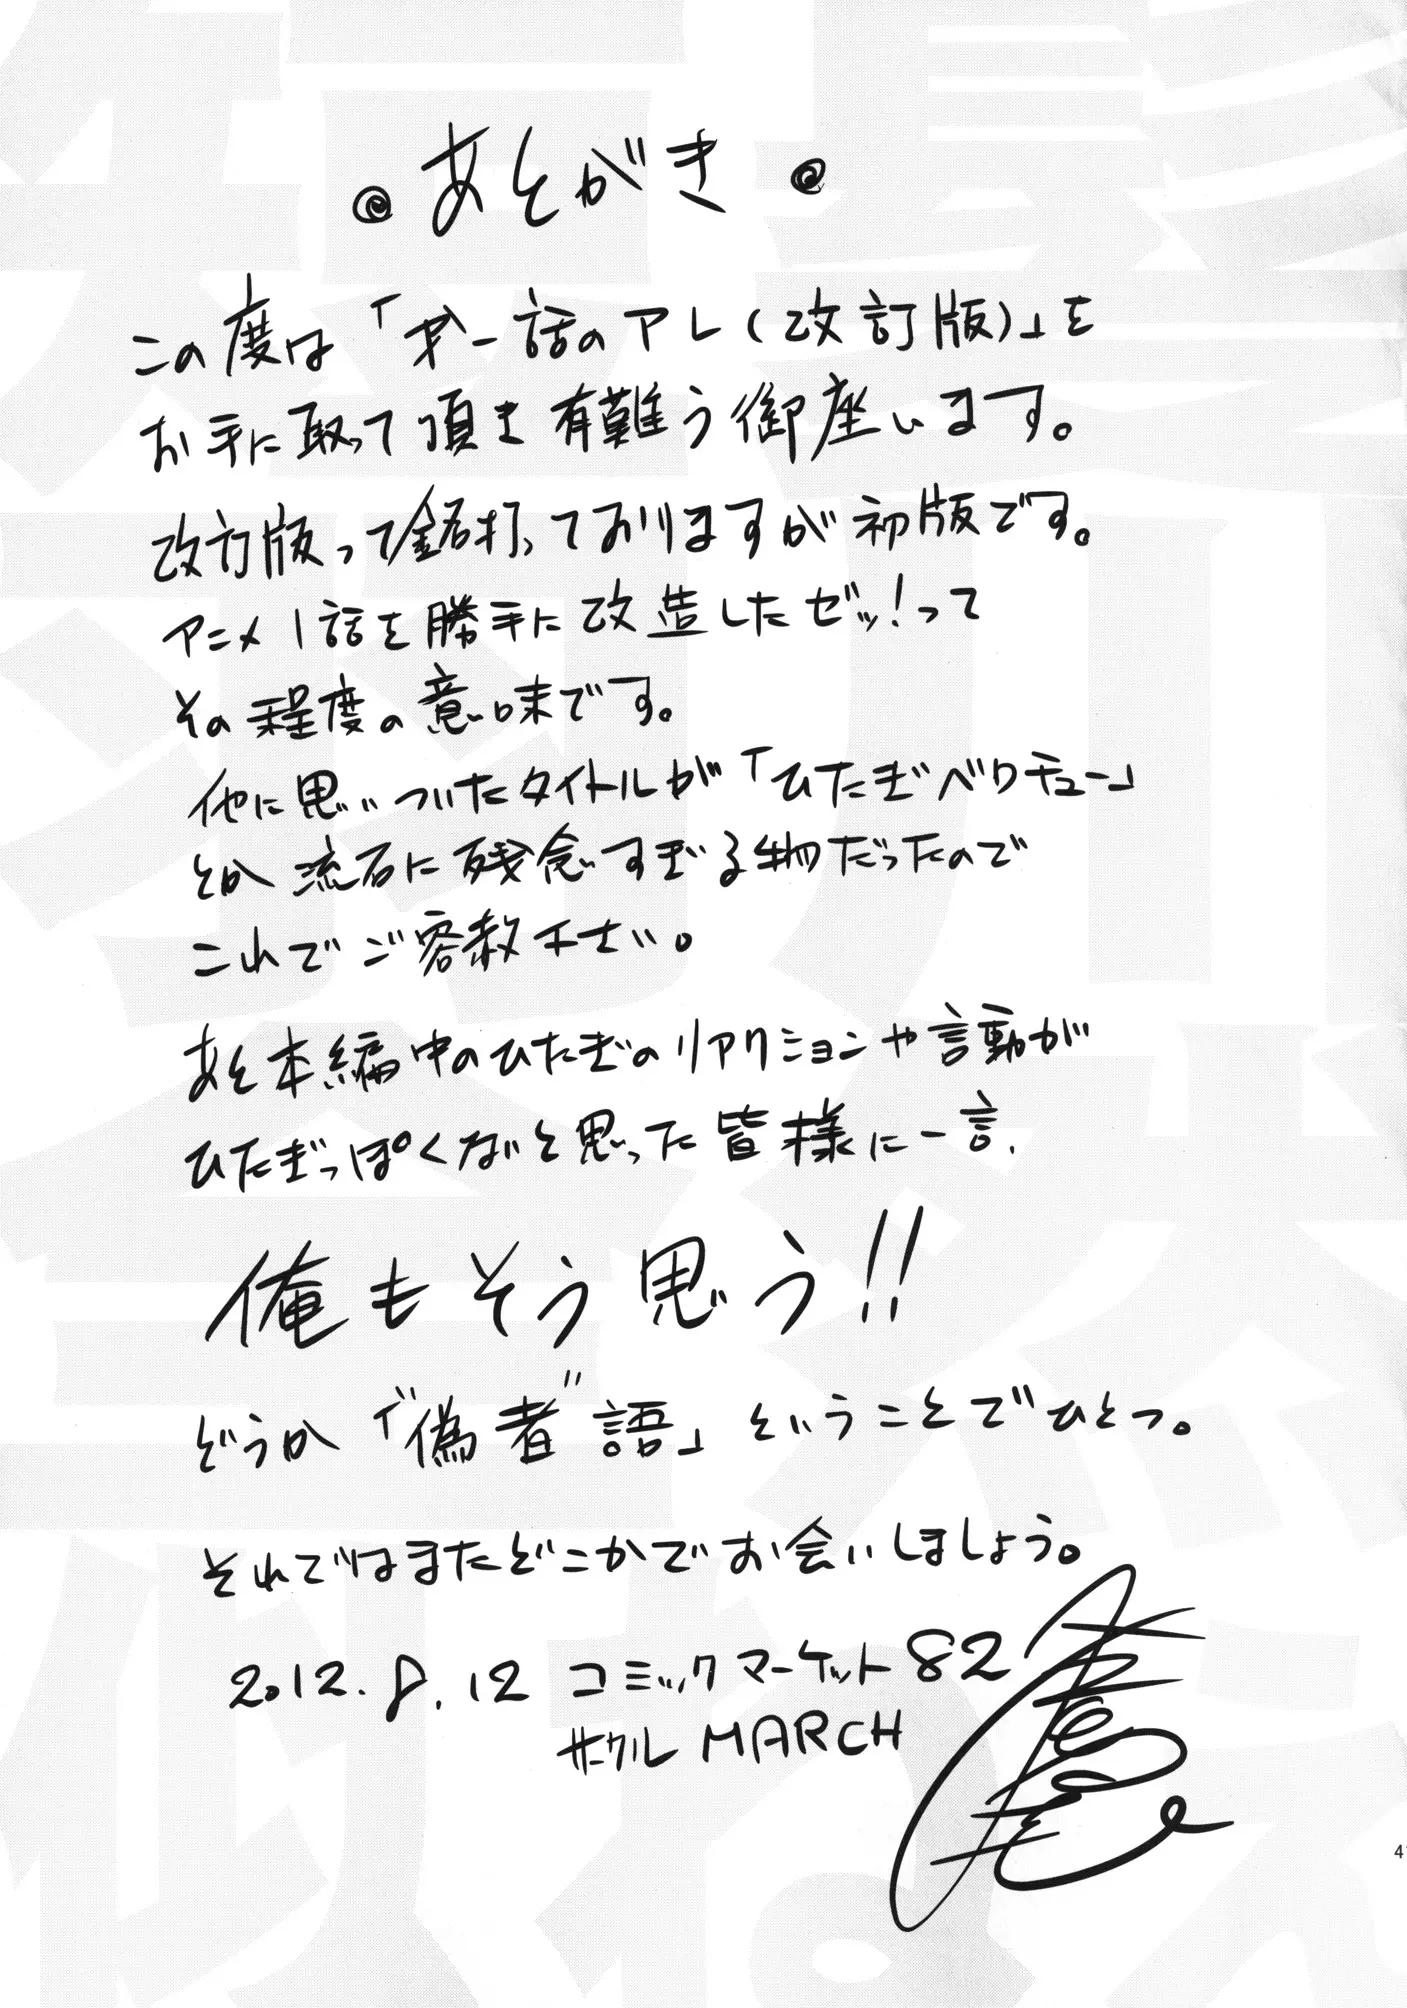 あとがき
この度は「第一話のアレ(改訂版)」を
お手に取って頂き有難う御座います。
改訂版って銘打っておりますが初版です。
アニメ1話を勝手に改造したぜッ!って
その程度の意味です。
他に思いついたタイトルが「ひたぎベクチュー」
とか流石に残念すぎる物だったので
これでご容赦下さい。
あと本編中のひたぎのリアクションや言動が
ひたぎっぽくないと思った皆様に一言、
俺もそう思う!!
どうか「"偽者"語」ということでひとつ。
それではまたどこかでお会いしましょう。
2012.8.12 コミックマーケット82
サークル MARCH